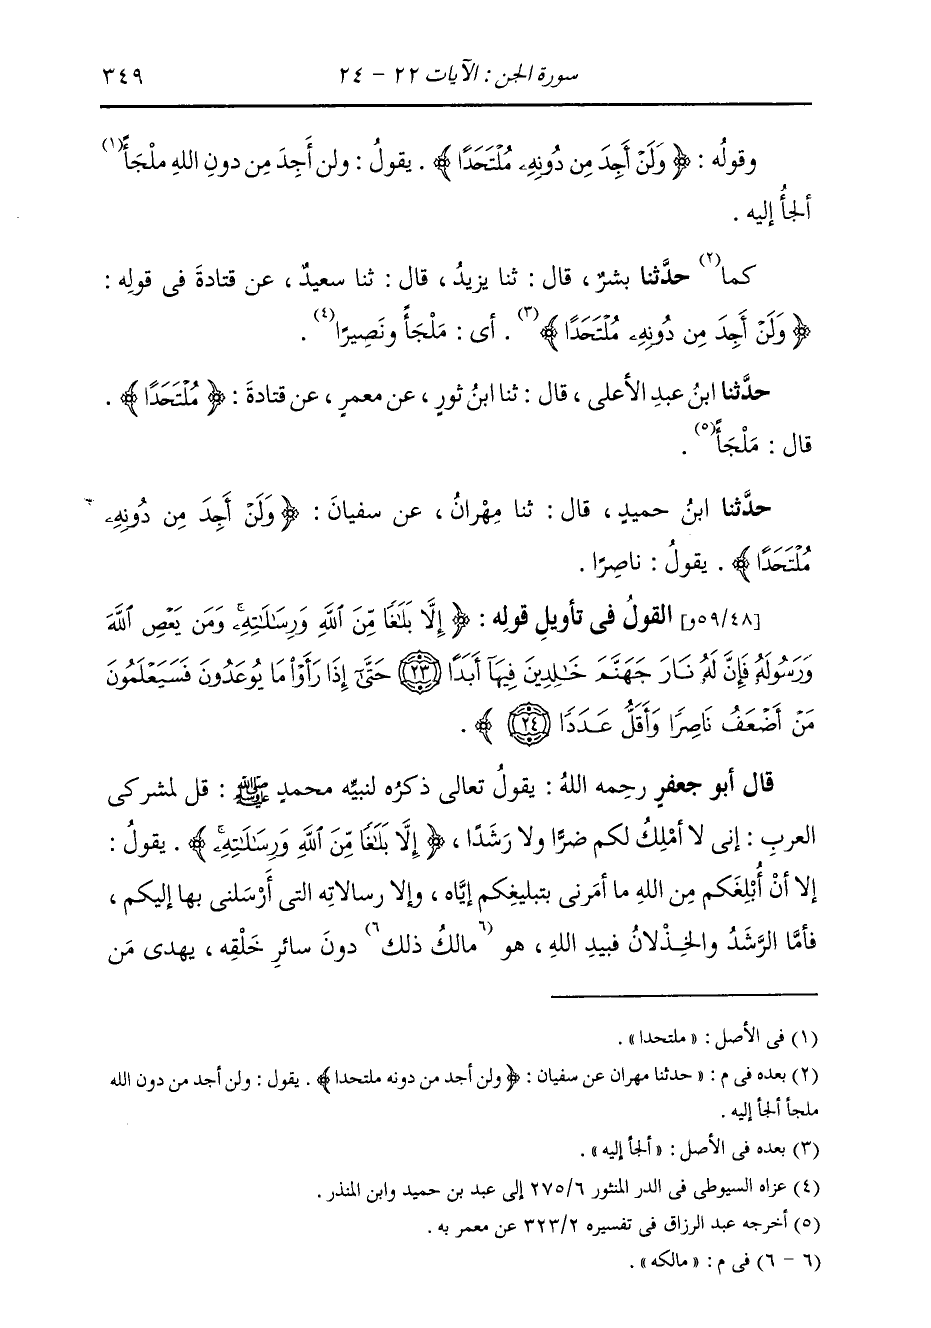 سورة الجن : الآيات ٢٢ - ٢٤ ٣٤٩
وقولُه : ﴿ وَلَنْ أَجِدَ مِن دُونِهِۦ مُلْتَحَدًا ﴾ . يقولُ : ولن أَجِدَ مِن دونِ اللهِ ملْجَأً(١)
ألجأُ إليه .
كما(٢) حدَّثنا بشرٌ ، قال : ثنا يزيدُ ، قال : ثنا سعيدٌ ، عن قتادةَ فى قولِه :
﴿ وَلَنْ أَجِدَ مِن دُونِهِۦ مُلْتَحَدًا ﴾(٣) . أى : مَلْجَأً ونَصِيرًا(٤) .
حدَّثنا ابنُ عبدِ الأعلى ، قال : ثنا ابنُ ثورٍ ، عن معمرٍ ، عن قتادةَ : ﴿ مُلْتَحَدًا ﴾ .
قال : مَلْجَأً(٥) .
حدَّثنا ابنُ حميدٍ ، قال : ثنا مِهْرانُ ، عن سفيانَ : ﴿ وَلَنْ أَجِدَ مِن دُونِهِۦ
مُلْتَحَدًا ﴾ . يقولُ : ناصِرًا .
[٤٨/٥٩و] القولُ فى تأويلِ قولِه : ﴿ إِلَّا بَلَٰغًا مِّنَ ٱللَّهِ وَرِسَٰلَٰتِهِۦۚ وَمَن يَعْصِ ٱللَّهَ
وَرَسُولَهُۥ فَإِنَّ لَهُۥ نَارَ جَهَنَّمَ خَٰلِدِينَ فِيهَآ أَبَدًا ﴿٢٣﴾ حَتَّىٰٓ إِذَا رَأَوْا۟ مَا يُوعَدُونَ فَسَيَعْلَمُونَ
مَنْ أَضْعَفُ نَاصِرًا وَأَقَلُّ عَدَدًا ﴿٢٤﴾ ﴾ .
قال أبو جعفرٍ رحِمه اللهُ : يقولُ تعالى ذكرُه لنبيِّه محمدٍ ﷺ : قل لمشركى
العربِ : إنى لا أمْلِكُ لكم ضرًّا ولا رَشَدًا ، ﴿ إِلَّا بَلَٰغًا مِّنَ ٱللَّهِ وَرِسَٰلَٰتِهِۦۚ ﴾ . يقولُ :
إلا أنْ أُبْلِغَكم مِن اللهِ ما أمَرنى بتبليغِكم إيَّاه ، وإلا رسالاتِه التى أَرْسَلنى بها إليكم ،
فأمَّا الرَّشَدُ والخِذْلانُ فبيدِ اللهِ ، هو (٦مالكُ ذلك٦) دونَ سائرِ خَلْقِه ، يهدى مَن
(١) فى الأصل : « ملتحدا » .
(٢) بعده فى م : « حدثنا مهران عن سفيان : ﴿ ولن أجد من دونه ملتحدا ﴾ . يقول : ولن أجد من دون الله
ملجأ ألجأ إليه .
(٣) بعده فى الأصل : « ألجأ إليه » .
(٤) عزاه السيوطى فى الدر المنثور ٢٧٥/٦ إلى عبد بن حميد وابن المنذر .
(٥) أخرجه عبد الرزاق فى تفسيره ٣٢٣/٢ عن معمر به .
(٦ - ٦) فى م : « مالكه » .